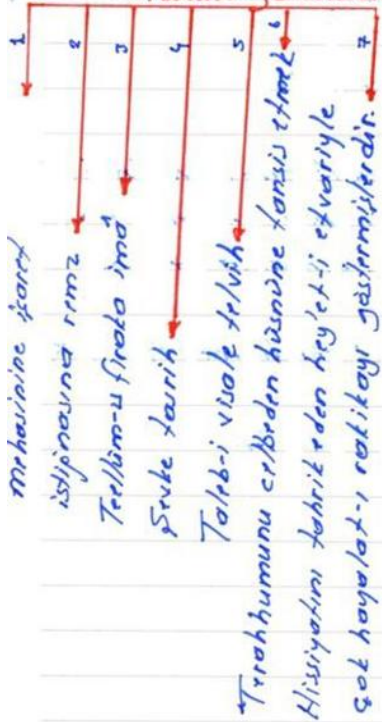 1 2 3 4 5 6 7
mehasinine işaret
istiğnasına remz
Teellüm-ü firaka imâ
Şevke tasrih
Taleb-i visale telvih
Terahhumunu celbeden hüsnüne tansis etmek
Hissiyatını tahrik eden hey'etli etvariyle
çok hayalat-ı rakikayı göstermişlerdir.